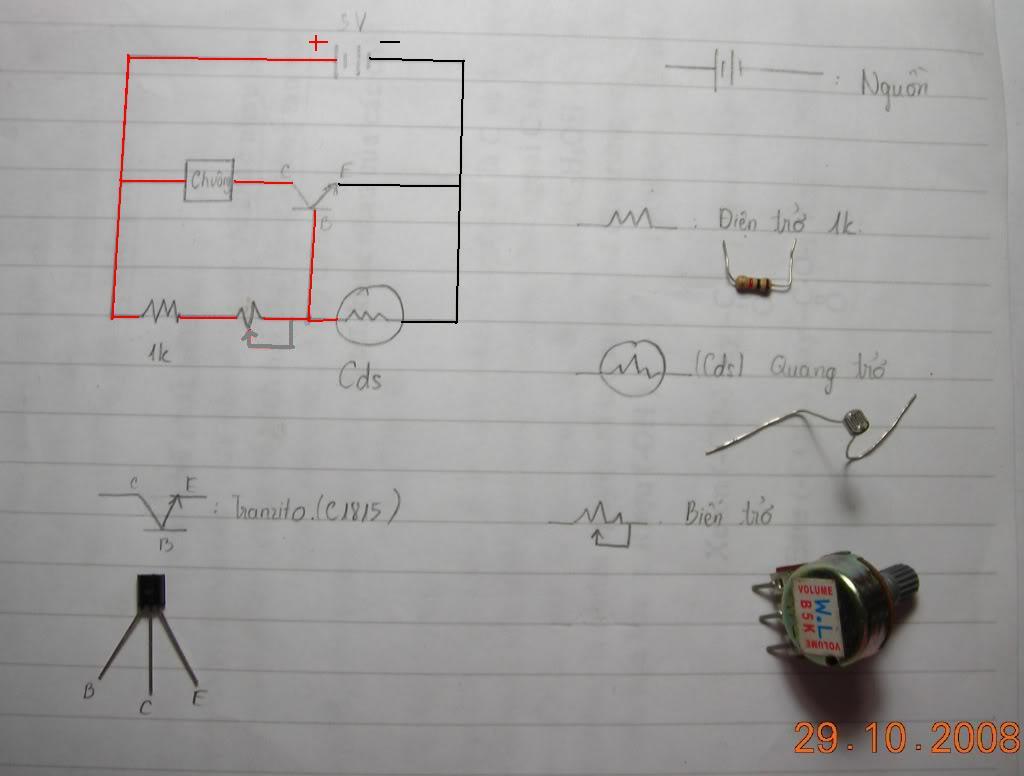 5V
+ −
: Nguồn
C E
Chuông
B
: Điện trở 1k.
1k
Cds
(Cds) Quang trở
C E
: Tranzito.(C1815)
B
Biến trở
VOLUME
W.L
B5K
VOLUME
B C E
29.10.2008